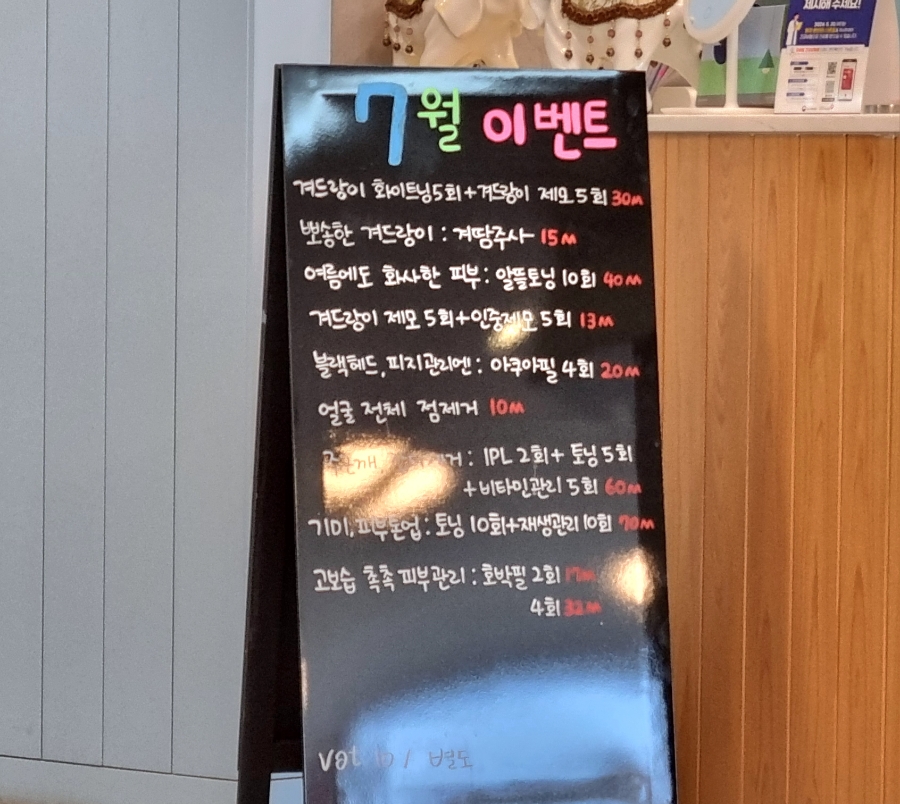 제시해 주세요!
7월 이벤트
겨드랑이 화이트닝5회+겨드랑이 제모 5회 30m
뽀송한 겨드랑이 : 겨땀주사 15m
여름에도 화사한 피부 : 알뜰토닝 10회 40m
겨드랑이 제모 5회+인중제모 5회 13m
블랙헤드, 피지관리엔 : 아쿠아필 4회 20m
얼굴 전체 점제거 10m
주근깨, : IPL 2회+ 토닝 5회
+비타민관리 5회 60m
기미, 피부톤업 : 토닝 10회+재생관리 10회 70m
고보습 촉촉 피부관리 : 호박필 2회 17m
4회 32m
vat 별도